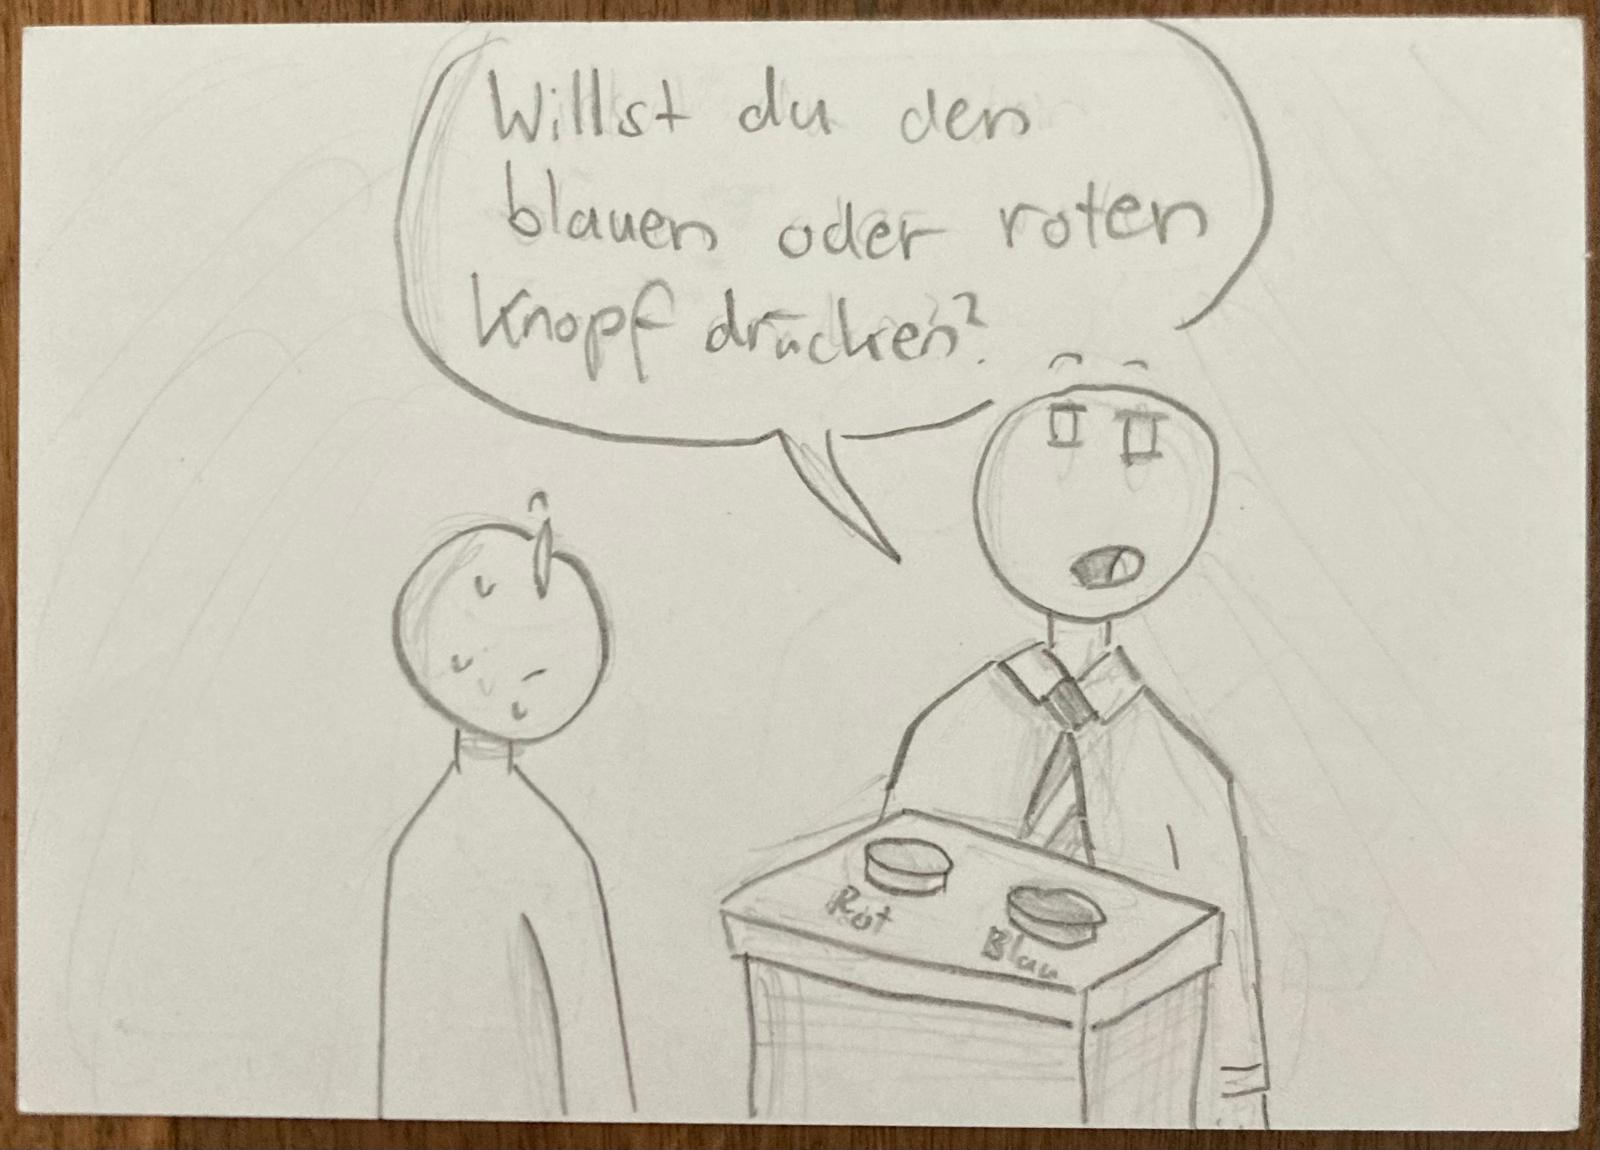 Willst du den
blauen oder roten
Knopf drücken?
Rot
Blau